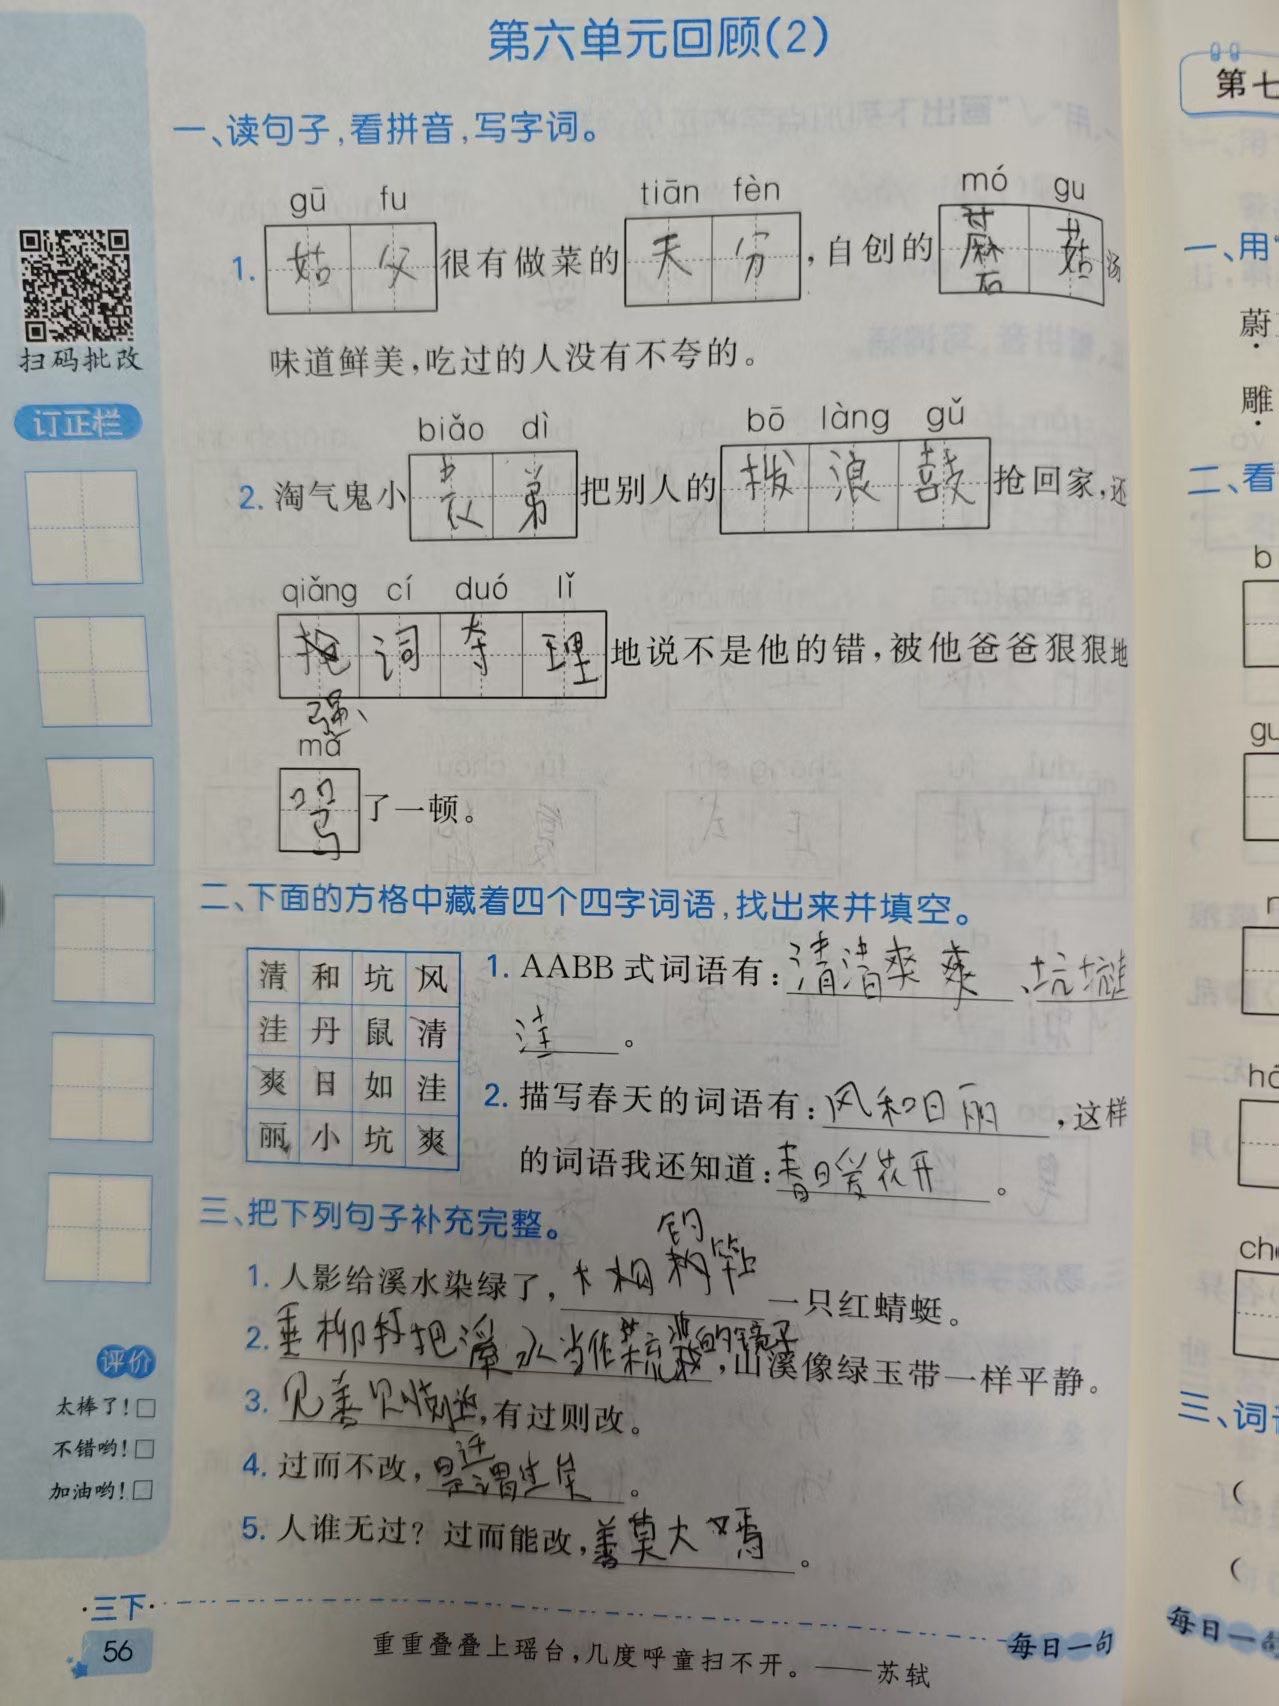 第六单元回顾(2)
一、读句子,看拼音,写字词。
gū fu tiān fèn mó gu
1. 姑父很有做菜的天分,自创的蘑菇汤
味道鲜美,吃过的人没有不夸的。
biǎo dì bō làng gǔ
2. 淘气鬼小表弟把别人的拨浪鼓抢回家,还
qiǎng cí duó lǐ
词夺理地说不是他的错,被他爸爸狠狠地
强
mà
骂了一顿。
二、下面的方格中藏着四个四字词语,找出来并填空。
清 和 坑 风
洼 丹 鼠 清
爽 日 如 洼
丽 小 坑 爽
1. AABB 式词语有:清清爽爽、坑坑洼
洼。
2. 描写春天的词语有:风和日丽,这样
的词语我还知道:春日爱花开。
三、把下列句子补充完整。
钓
1. 人影给溪水染绿了,一只红蜻蜓。
2. 垂柳把溪水当作梳的镜子,山溪像绿玉带一样平静。
3. 见善则,有过则改。
4. 过而不改,是谓过。
5. 人谁无过?过而能改,善莫大焉。
扫码批改
订正栏
评价
太棒了!□
不错哟!□
加油哟!□
·三下·
56
重重叠叠上瑶台,几度呼童扫不开。——苏轼
每日一句
第七
一、用“
蔚
雕
二、看
b
gu
ch
三、词语
(
(
每日一句